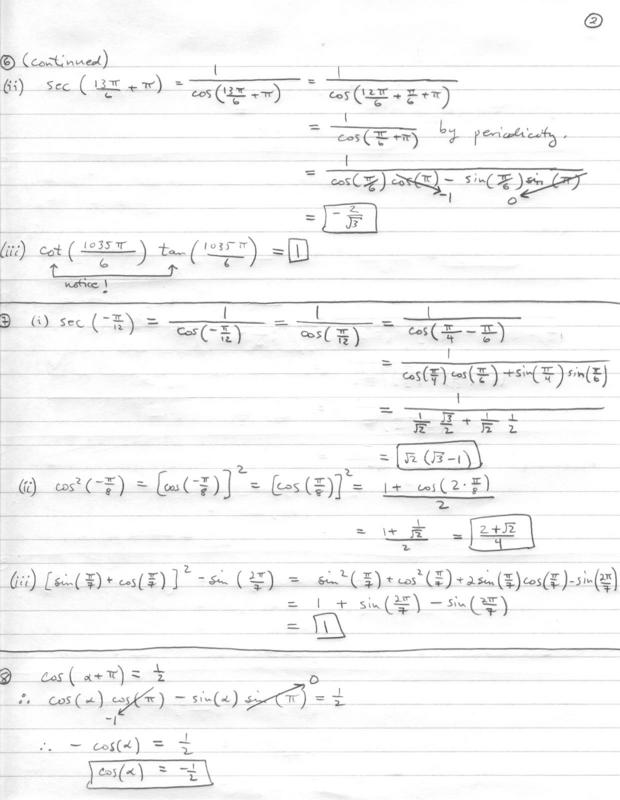 ②
⑥ (continued)
(ii) sec(13π/6 + π) = 1/cos(13π/6 + π) = 1/cos(12π/6 + π/6 + π)
= 1/cos(π/6 + π) by periodicity.
= 1/(cos(π/6) cos(π) - sin(π/6) sin(π))
-1 0
= -2/√3
(iii) cot(1035π/6) tan(1035π/6) = 1
notice!
⑦ (i) sec(-π/12) = 1/cos(-π/12) = 1/cos(π/12) = 1/cos(π/4 - π/6)
= 1/(cos(π/4) cos(π/6) + sin(π/4) sin(π/6))
= 1/(1/√2 √3/2 + 1/√2 1/2)
= √2(√3-1)
(ii) cos²(-π/8) = [cos(-π/8)]² = [cos(π/8)]² = (1 + cos(2·π/8))/2
= (1 + 1/√2)/2 = (2+√2)/4
(iii) [sin(π/7) + cos(π/7)]² - sin(2π/7) = sin²(π/7) + cos²(π/7) + 2sin(π/7)cos(π/7) - sin(2π/7)
= 1 + sin(2π/7) - sin(2π/7)
= 1
⑧ cos(α+π) = 1/2
0
∴ cos(α) cos(π) - sin(α) sin(π) = 1/2
-1
∴ - cos(α) = 1/2
cos(α) = -1/2